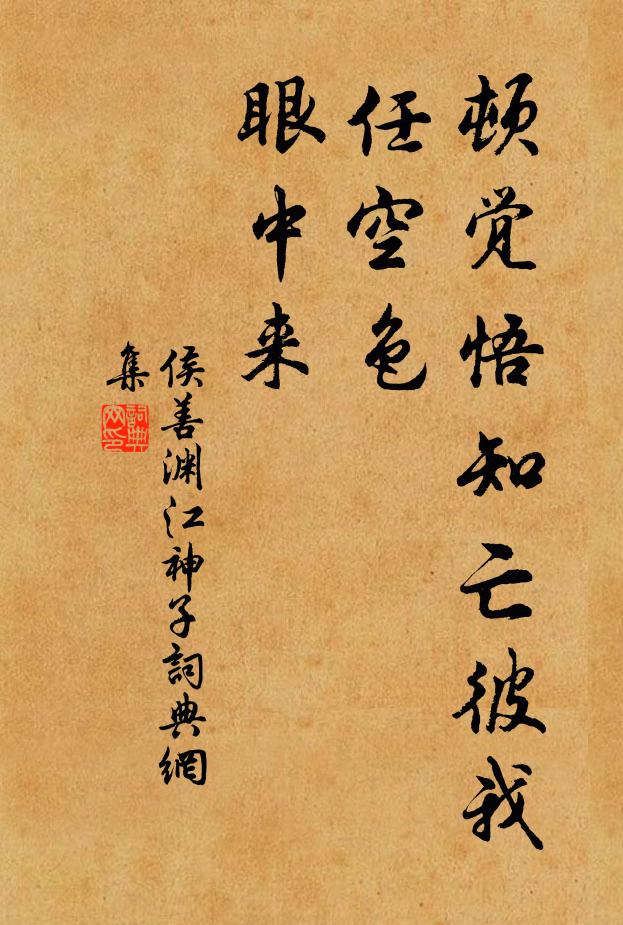 顿觉悟知亡彼我
任空色
眼中来
侯善渊江神子詞典網
集
詞典
网印